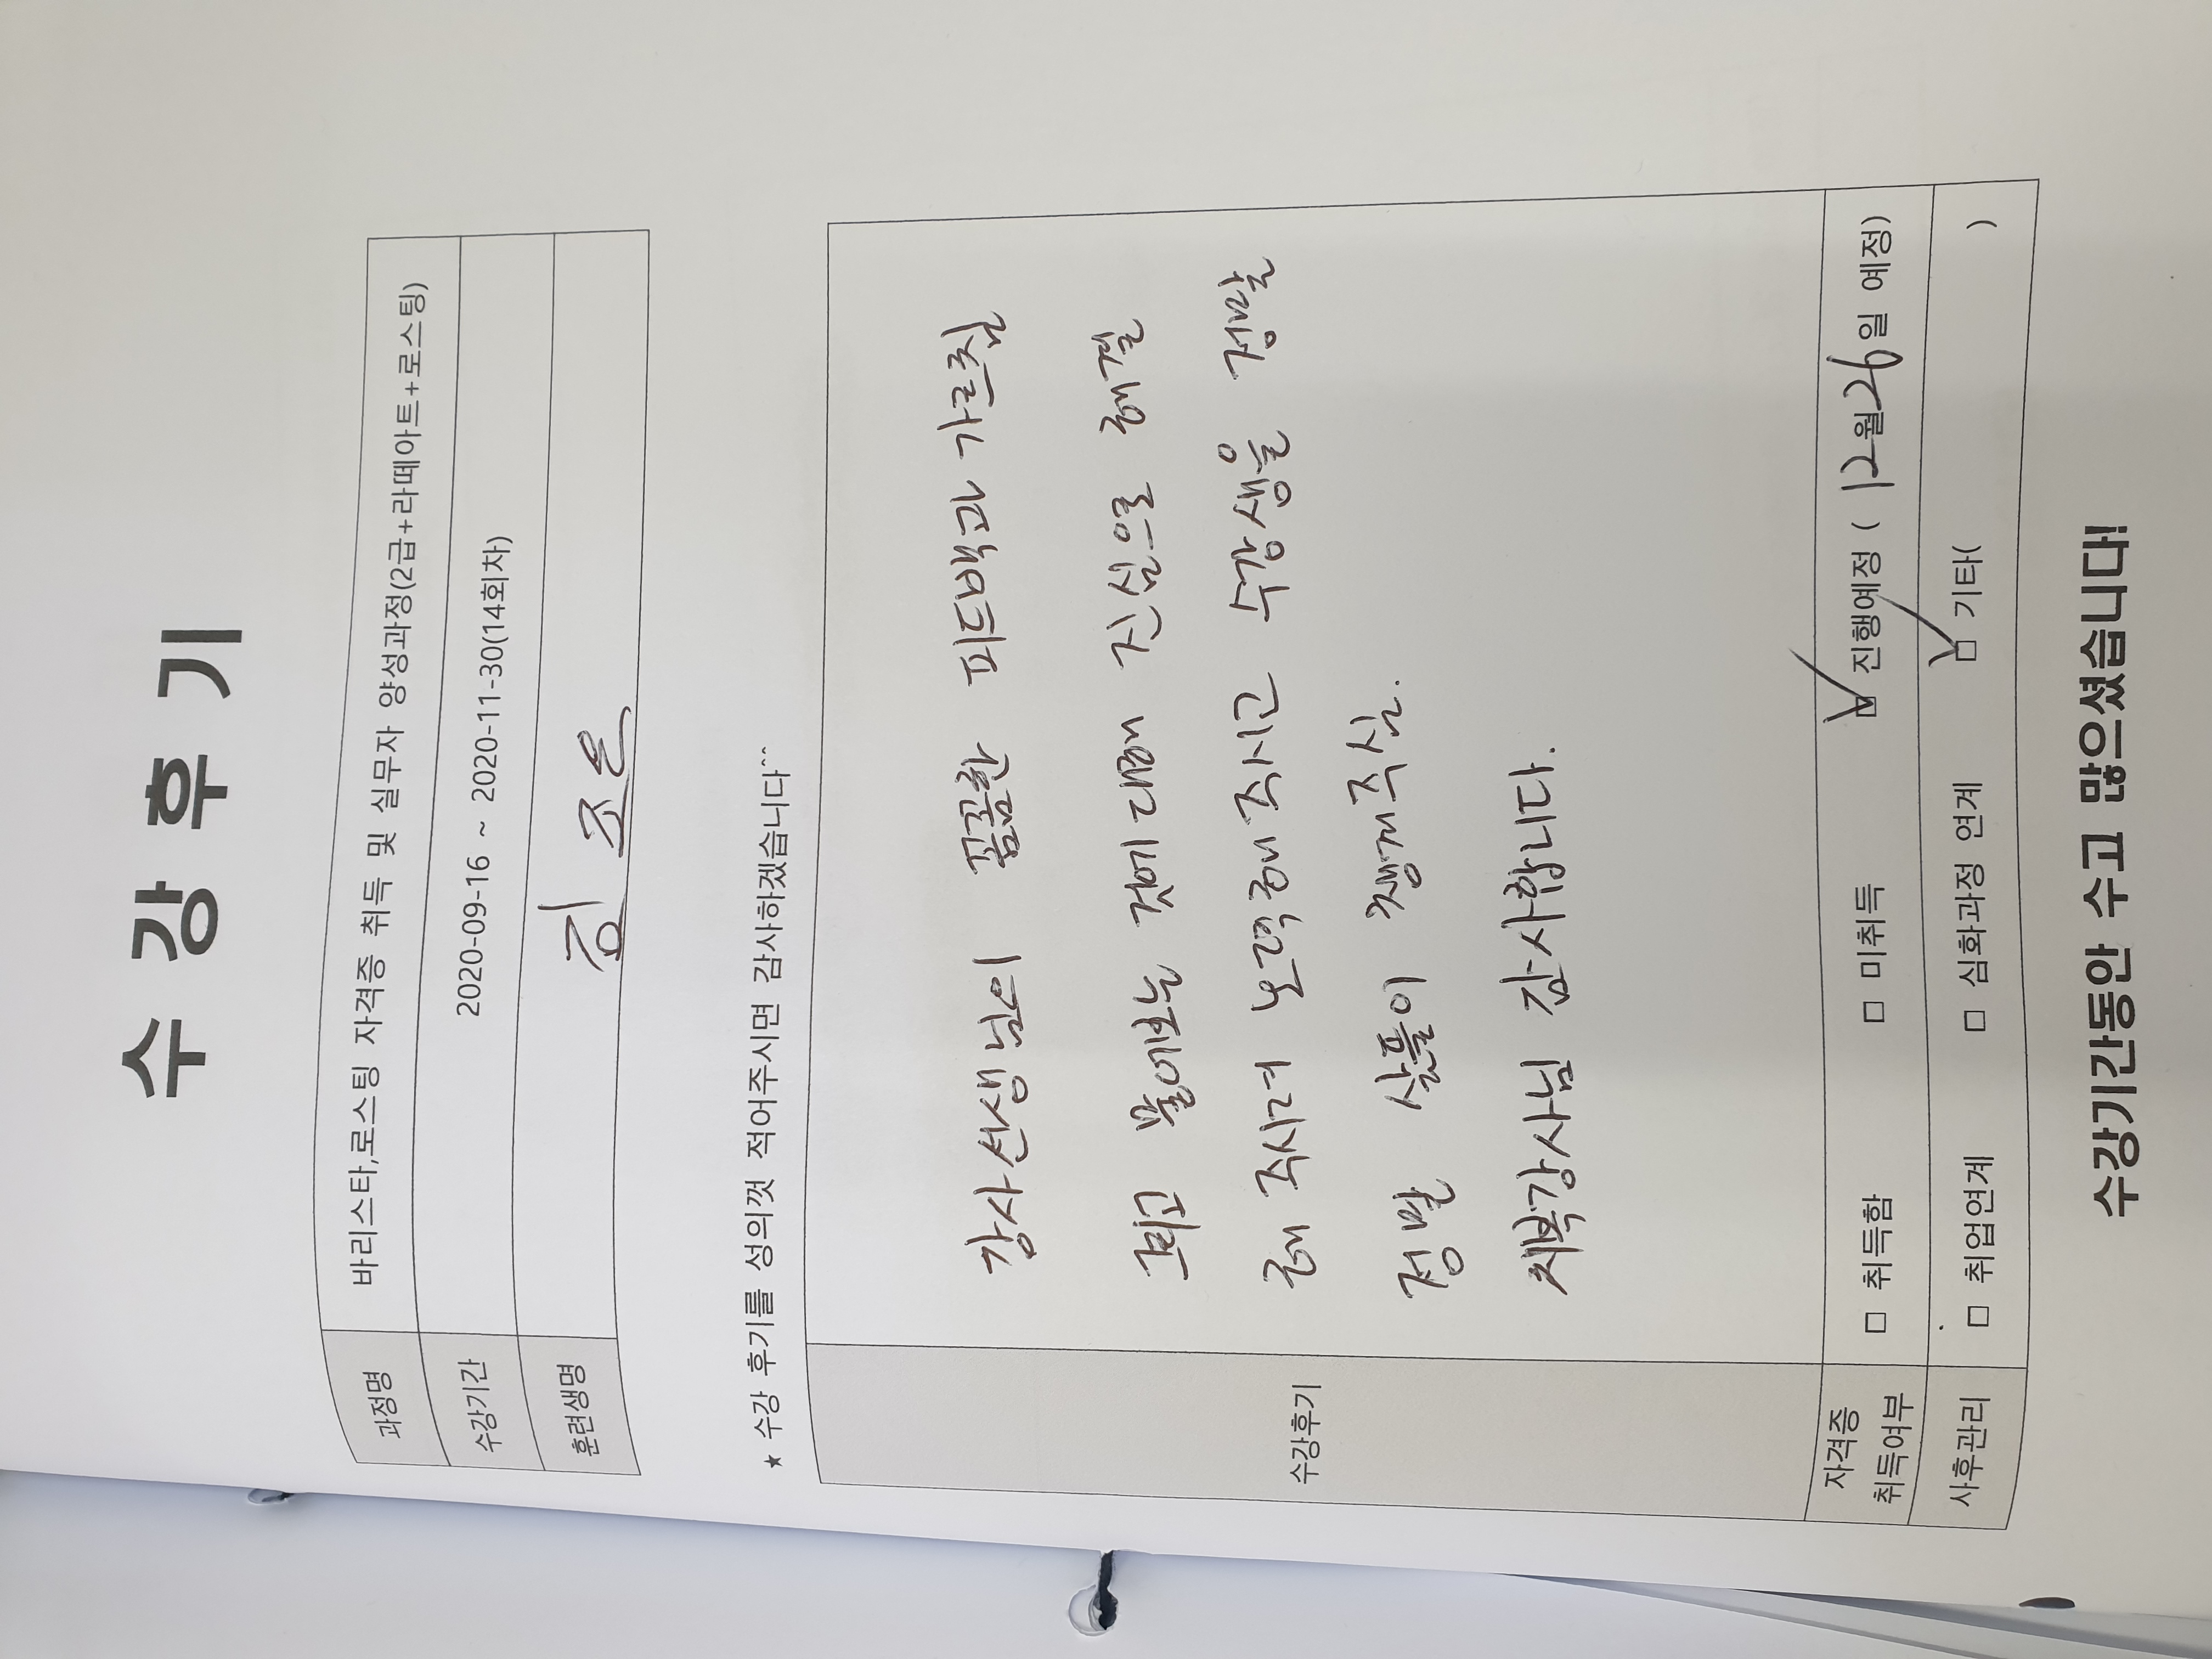 수 강 후 기
과정명 바리스타,로스팅 자격증 취득 및 실무자 양성과정(2급+라떼아트+로스팅)
수강기간 2020-09-16 ~ 2020-11-30(14회차)
훈련생명 김 조은
★ 수강 후기를 성의껏 적어주시면 감사하겠습니다^^
수강후기
강사선생님의 꼼꼼한 피드백과 가르침
그리고 물어보는 것에 대해 진심으로 해결
해 주시려 노력해주시고 수강생을 정말
정말 살뜰이 챙겨주심.
채복강사님 감사합니다.
자격증 취득여부 □ 취득함 □ 미취득 ☑ 진행예정 ( 12월 26일 예정)
사후관리 □ 취업연계 □ 심화과정 연계 ☑ 기타( )
수강기간동안 수고 많으셨습니다!